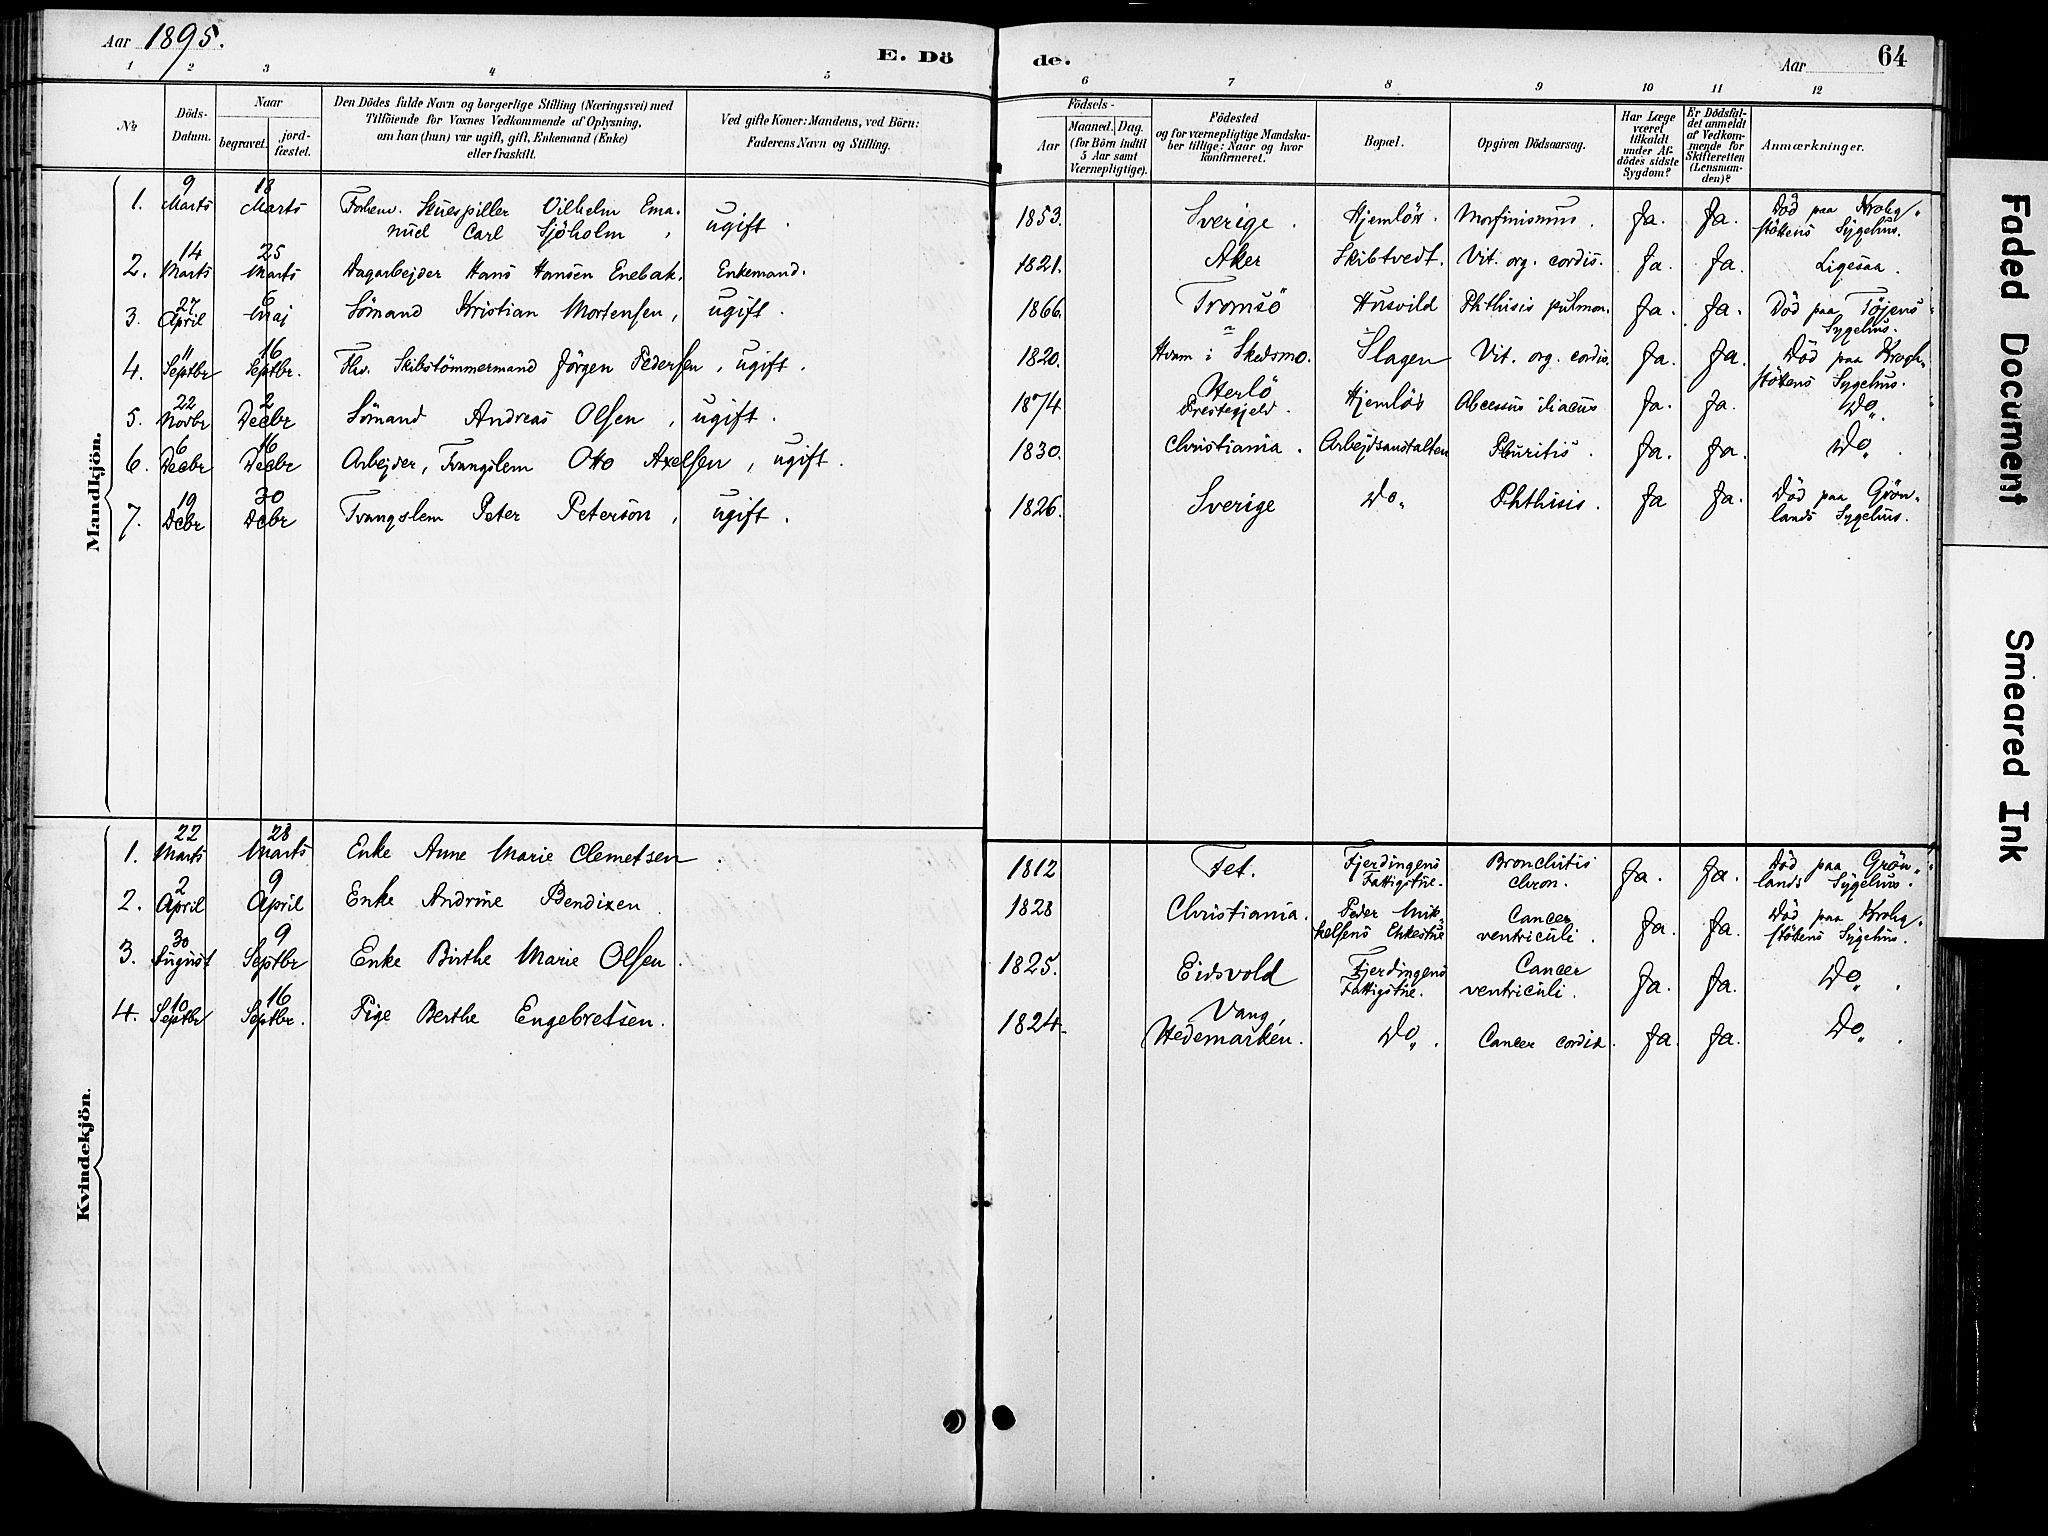 Aar 1895.
E. Dö
1 2 3 4 5
№
Döds-
Datum.
Naar
begravet.
jord-
fæstet.
Den Dödes fulde Navn og borgerlige Stilling (Næringsvei) med
Tilföiende for Voxnes Vedkommende af Oplysning,
om han (hun) var ugift, gift, Enkemand (Enke)
eller fraskilt.
Ved gifte Koner: Mandens, ved Börn:
Faderens Navn og Stilling.
Mandkjön.
1. 9 Marts 18 Marts Forhenv. Skuespiller Vilhelm Ema-
nuel Carl Sjöholm, ugift.
2. 14 Marts 25 Marts Dagarbejder Hans Hansen Enebak, Enkemand.
3. 27 April 6 Maj Sömand Kristian Mortensen, ugift.
4. 11 Septbr 16 Septbr. Fhv. Skibstömmermand Jörgen Pedersen, ugift.
5. 22 Novbr 2 Decbr Sömand Andreas Olsen, ugift.
6. 6 Decbr 16 Decbr Arbejder, Tvangslem Otto Axelsen, ugift.
7. 19 Dcbr 30 Dcbr Tvangslem Peter Peterson, ugift.
Kvindekjön.
1. 22 Marts 28 Marts Enke Anne Marie Clemetsen.
2. 2 April 9 April Enke Andrine Bendixen.
3. 30 August 9 Septbr Enke Birthe Marie Olsen.
4. 10 Septbr 16 Septbr. Pige Berthe Engebretsen.
de.
Aar
64
6 7 8 9 10 11 12
Födsels-
Aar
Maaned. Dag.
(for Börn indtil
5 Aar samt
Værnepligtige).
Födested
og for værnepligtige Mandska-
ber tillige: Naar og hvor
konfirmeret.
Bopæl.
Opgiven Dödsaarsag.
Har Læge
været
tilkaldt
under Af-
dödes sidste
Sygdom?
Er Dödsfal-
det anmeldt
af Vedkom-
mende for
Skifteretten
(Lensman-
den)?
Anmærkninger.
1853. Sverige. Hjemlös. Morfinismus. Ja. Ja. Död paa Krohg-
stöttens Sygehus.
1821. Aker Skibtvedt. Vit. org. cordis. Ja. Ja. Ligesaa.
1866. Tromsö Husvild Phthisis pulmon. Ja. Ja. Död paa Töjens
Sygehus.
1820. Hvam i Skedsmo. Slagen Vit. org. cordis. Ja. Ja. Död paa Krogh-
stöttens Sygehus.
1874 Herlö
Prestegjeld. Hjemlös Abcessus iliacus Ja. Ja. Do.
1830. Christiania. Arbejdsanstalten Pleuritis. Ja. Ja. Do.
1826. Sverige Do. Phthisis. Ja Ja. Död paa Grön-
lands Sygehus.
1812 Fet. Fjerdingens
Fattigstue. Bronchitis
chron. Ja. Ja. Död paa Grön-
lands Sygehus.
1828 Christiania. Peder Mik-
kelsens Enkestue Cancer
ventriculi. Ja. Ja. Död paa Krohg-
stöttens Sygehus.
1825. Eidsvold Fjerdingens
Fattigstue. Cancer
ventriculi. Ja. Ja. Do.
1824. Vang,
Hedemarken. Do. Cancer cordis. Ja. Ja. Do.
Faded Document
Smeared Ink